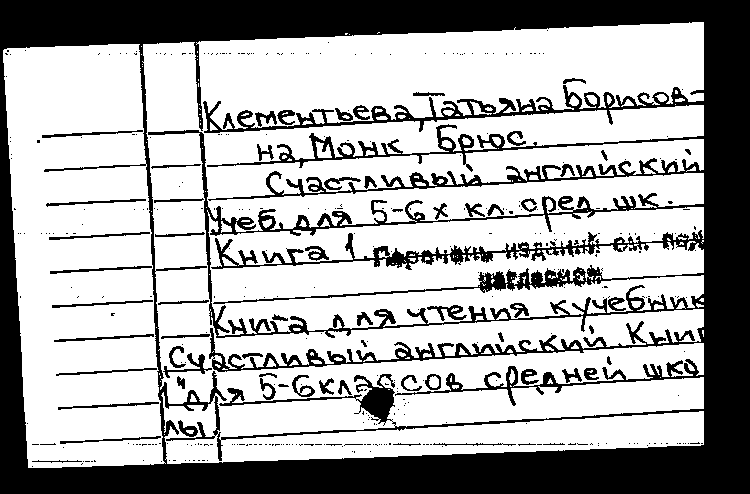 Клементьева, Татьяна Борисов-
на, Монк, Брюс.
Счастливый английский
Учеб. для 5-6х кл. сред. шк.
Книга 1. Перечень изданий см. под
заглавием
Книга для чтения к учебник
"Счастливый английский. Книг
1" для 5-6 классов средней шко
лы.